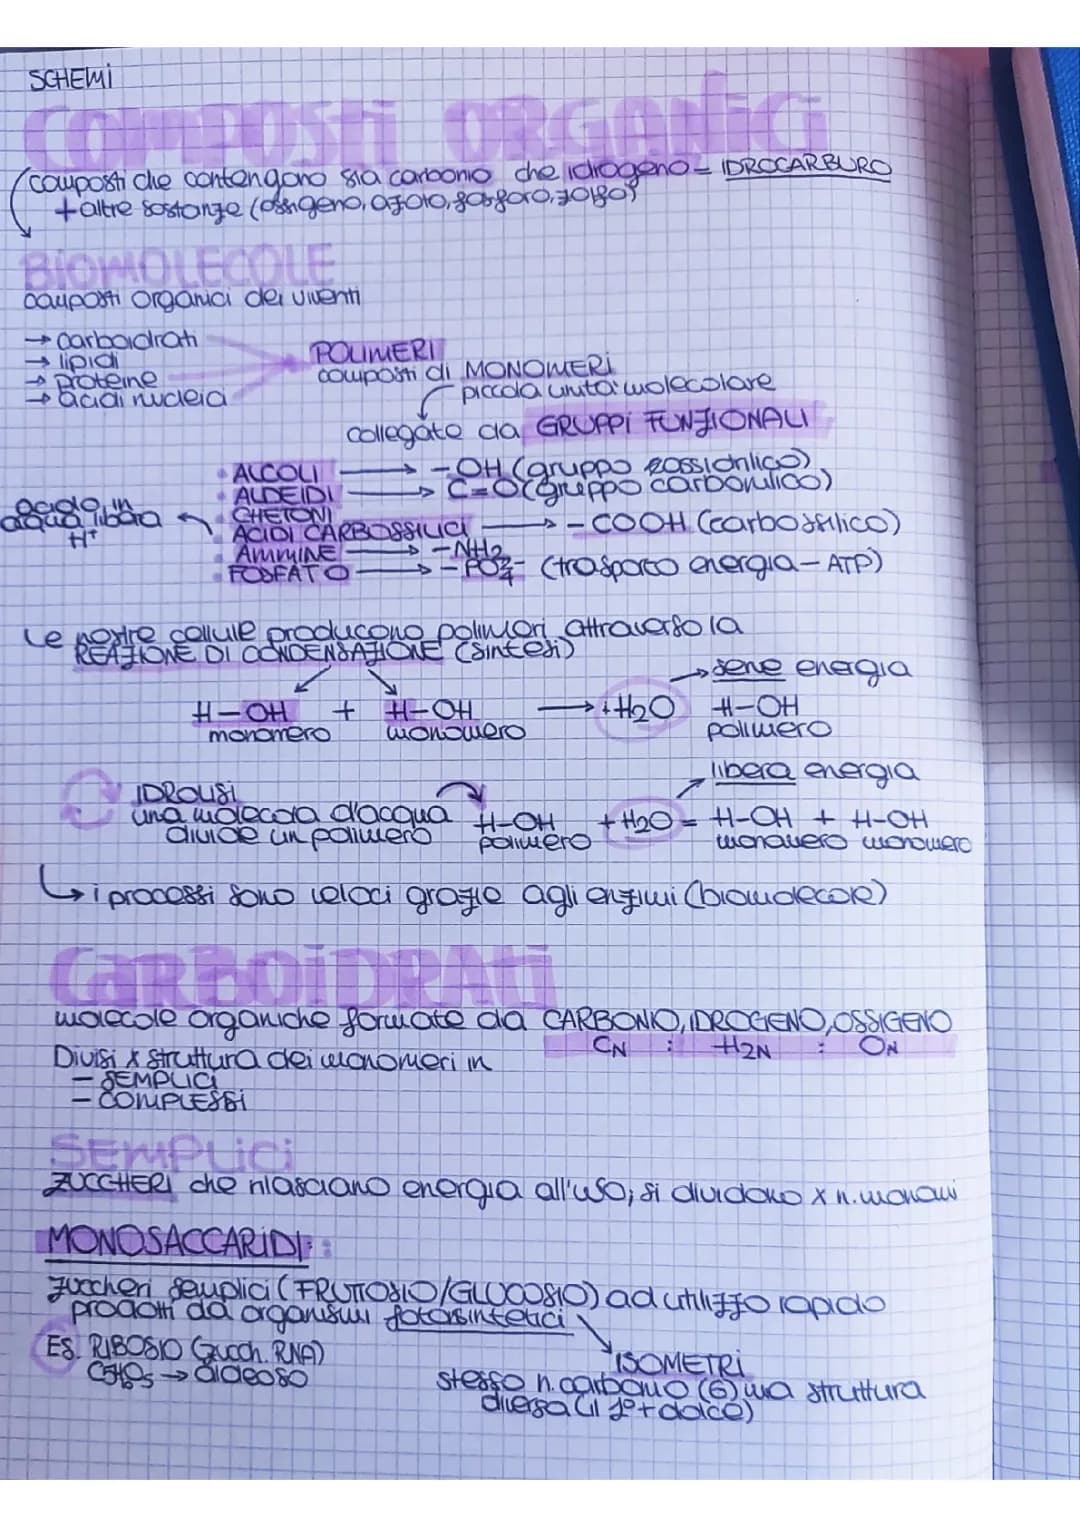 SCHEMi
COMPOSTi ORGANiCi
composti che contengono sia carbonio che idrogeno - IDROCARBURO
+ altre sostanze (ossigeno, azoto, fosforo, zolfo)
BiOMOLECOLE
composti organici dei viventi
→ carboidrati
→ lipidi
→ proteine
→ acidi nucleici
POLIMERI
composti di MONOMERi
piccola unità molecolare
collegate da GRUPPi FUNZIONALI
• ALCOLI → -OH (gruppo ossidrilico)
• ALDEIDI → C=O (gruppo carbonilico)
• CHETONI
acido in acqua libera H⁺
• ACIDI CARBOSSILICI → -COOH (carbossilico)
• AMMINE → -NH₂
• FOSFATO → -PO₄³⁻ (trasporto energia - ATP)
Le nostre cellule producono polimeri attraverso la
REAZIONE DI CONDENSAZIONE (sintesi)
→ serve energia
H-OH + H-OH → + H₂O H-OH
monomero monomero polimero
libera energia
IDROLISI
una molecola d'acqua
divide un polimero
H-OH + H₂O = H-OH + H-OH
polimero monomero monomero
↳ i processi sono veloci grazie agli enzimi (biomolecole)
CARBOiDRATi
molecole organiche formate da CARBONIO, IDROGENO, OSSIGENO
CN : H2N : ON
Divisi x struttura dei monomeri in
- SEMPLICI
- COMPLESSI
SEMPLiCi
ZUCCHERI che rilasciano energia all'uso; si dividono x n. monomi
MONOSACCARiDI:
zuccheri semplici (FRUTTOSIO/GLUCOSIO) ad utilizzo rapido
prodotti da organismi fotosintetici
ES. RIBOSIO (zucch. RNA)
C₅H₁₀O₅ → aldeoso
ISOMETRi
stesso n. carbonio (6) ma struttura
diversa (il 1° + dolce)